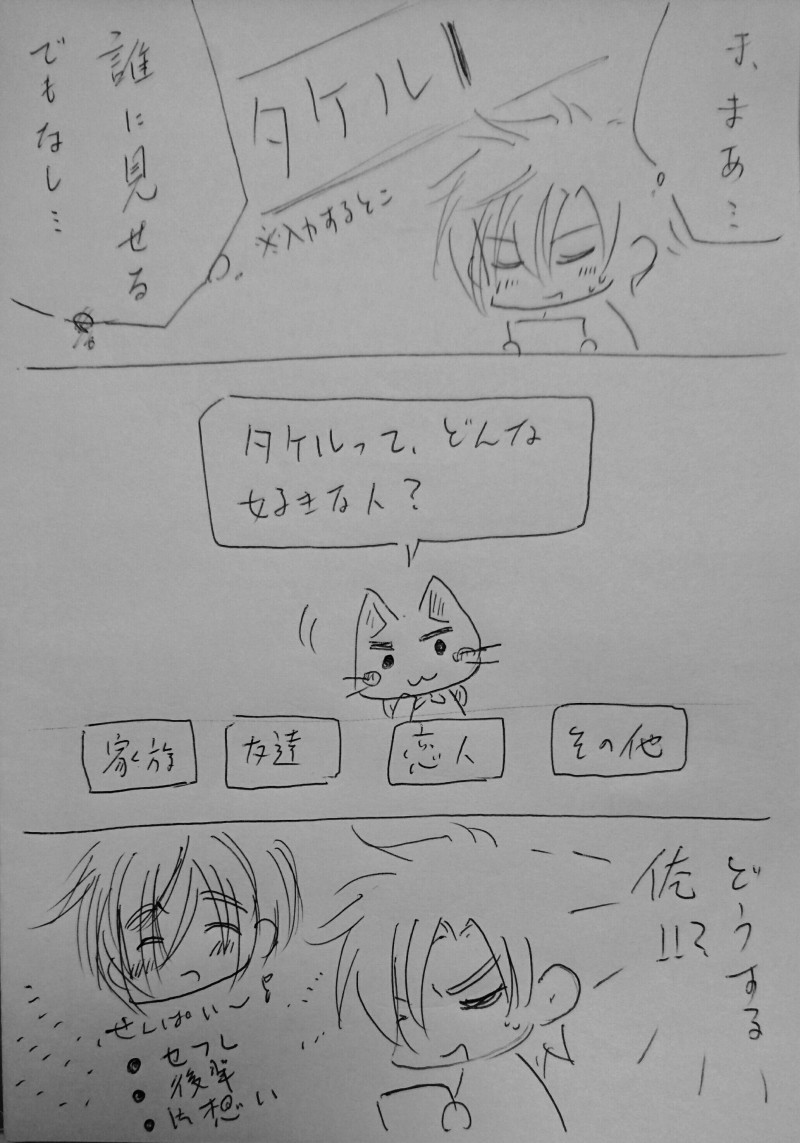 ま、まあ…
タケル
※入力するとこ
誰に見せる
でもなし…
タケルって、どんな
好きな人?
家族
友達
恋人
その他
どうする
佐!!?
せんぱい〜♪
● セフレ
● 後輩
● 片想い